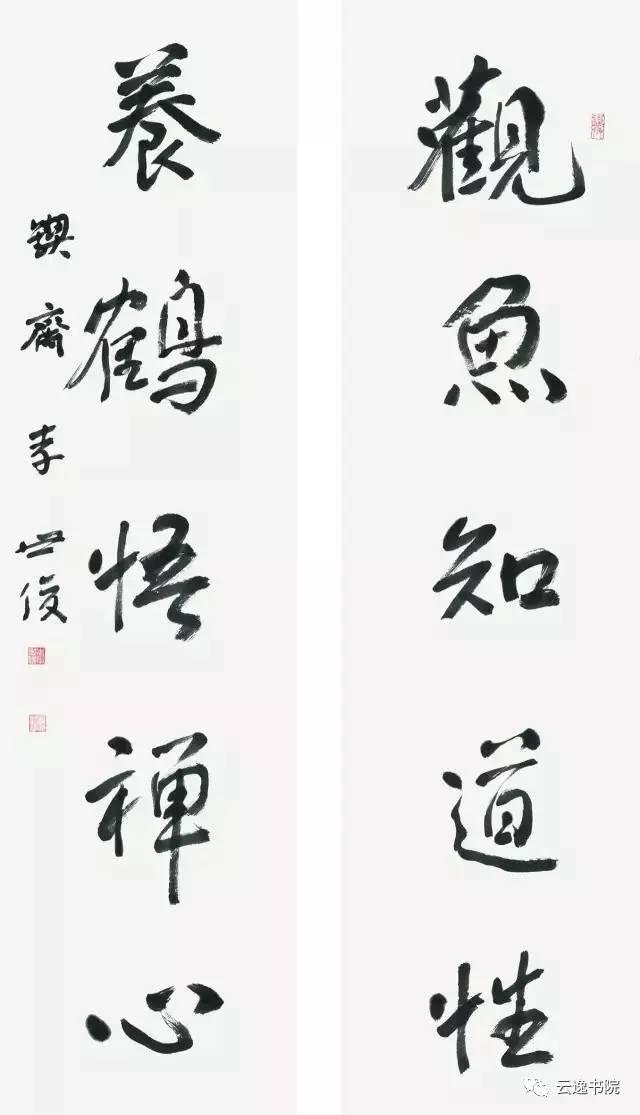 觀魚知道性
養鶴悟禪心
鍥齋李世俊
云逸书院